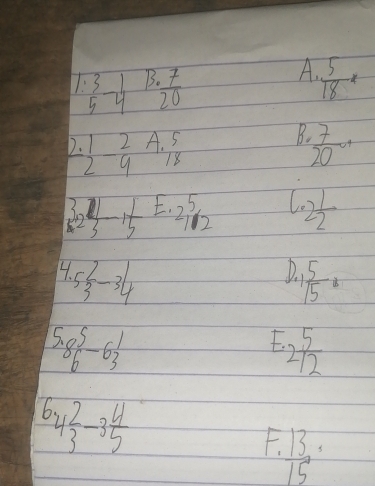 1. 3/5 - 1/4 B. 7/20 A. 5/18
2. 1/2 - 2/9 A. 5/18 B. 7/20
3. 2 1/3 - 1 1/5 E. 2 5/12 C. 2 1/2
4. 5 2/3 - 3 1/4 D. 1 5/15
5. 8 5/6 - 6 1/3 E. 2 5/12
6. 4 2/3 - 3 4/5 F. 13/15